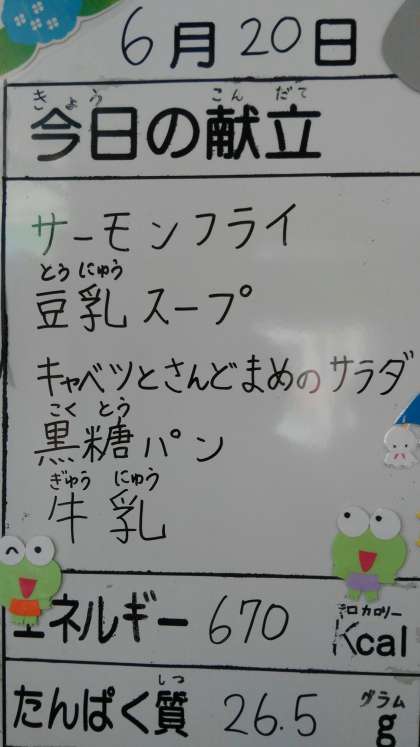 6月20日
きょう こんだて
今日の献立
サーモンフライ
とうにゅう
豆乳スープ
キャベツとさんどまめのサラダ
こくとう
黒糖パン
ぎゅうにゅう
牛乳
エネルギー 670 キロカロリー Kcal
しつ
たんぱく質 26.5 グラム g